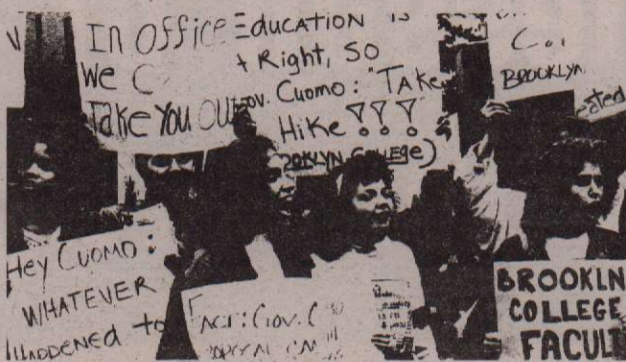 In Office
We C
Take You Out
Education is
a Right, So
Gov. Cuomo: "Take
Hike ! ! !
Brooklyn College)
BROOKLYN
eated
Hey Cuomo:
WHATEVER
Happened to
Fact: Gov. C
BROOKLN
COLLEGE
FACULT